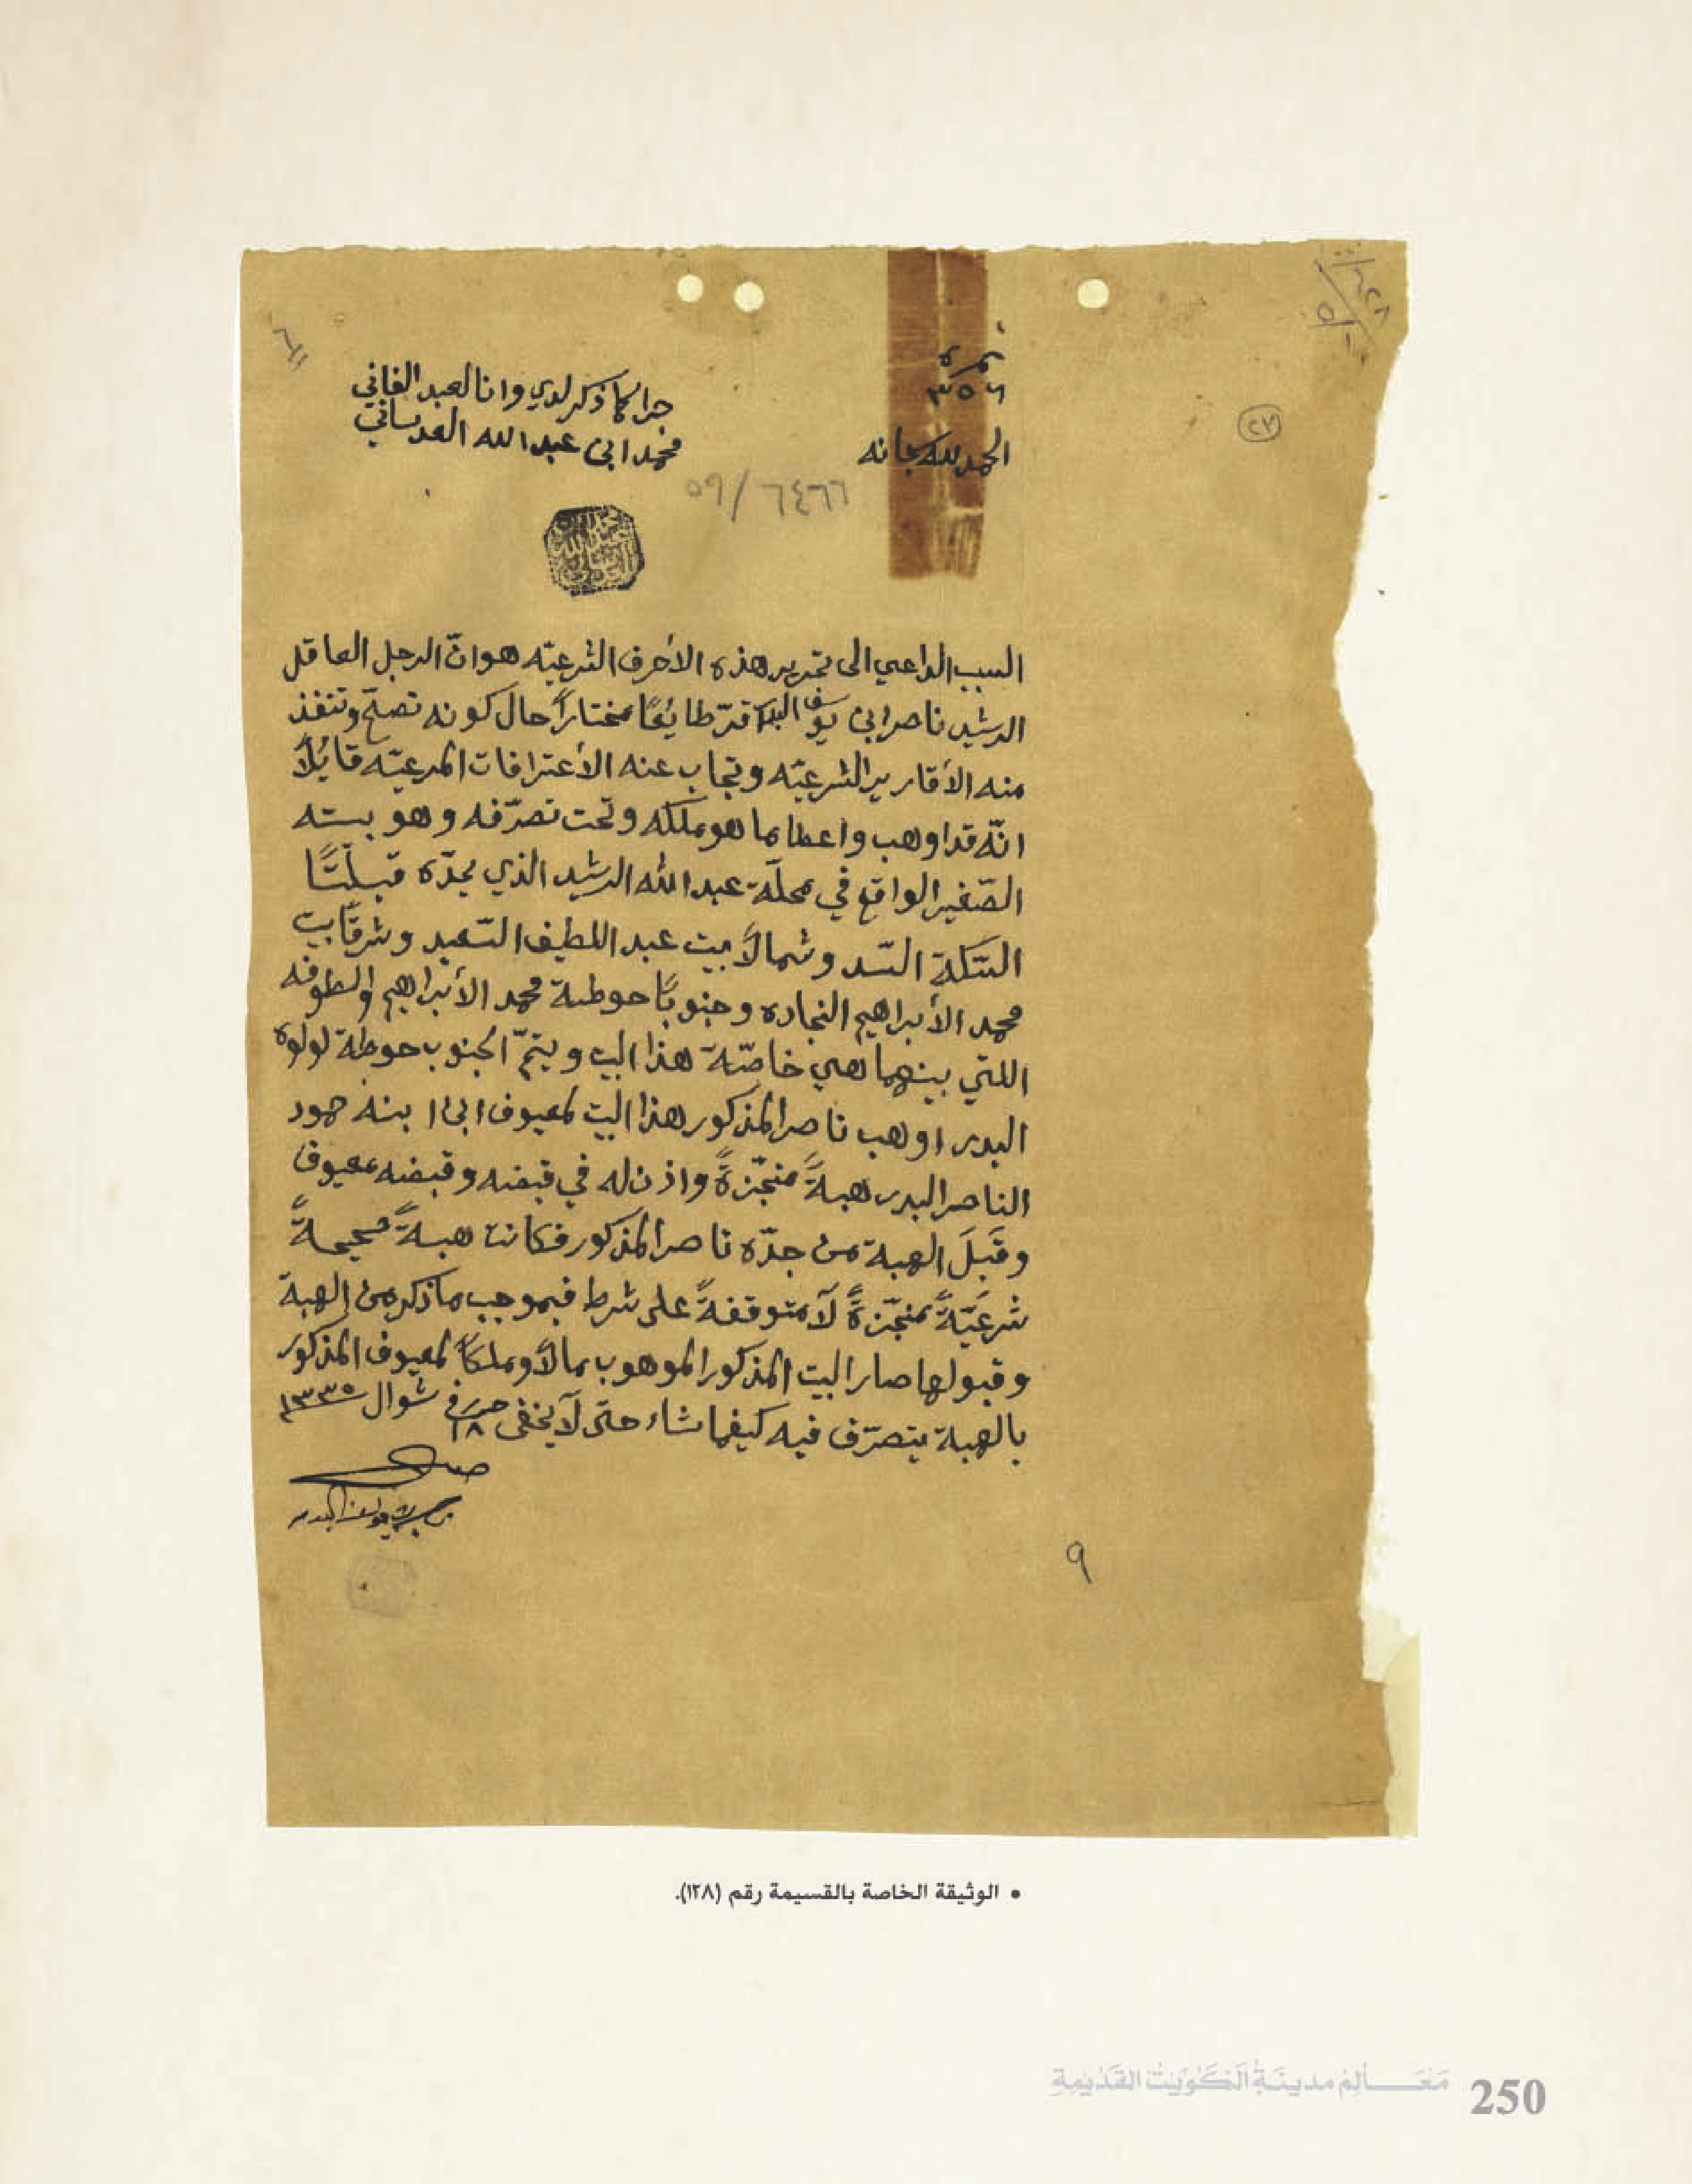 نمرة
٣٥٦
٢٧
الحمد لله سبحانه
جرا كما ذكر لدي وانا العبد الفاني
محمد ابن عبدالله العدساني
٥٩/٦٤٦٦
السبب الداعي الى تحرير هذه الأحرف الشرعيّه هو انّ الرجل العاقل
الرشيد ناصر ابن يوسف البدر اقرّ طايعًا مختاراً حال كونه تصحّ وتنفذ
منه الأقارير الشرعيّه وتجاب عنه الأعترافات المرعيّه قايلاً
انّه قد اوهب واعطا ما هو ملكه وتحت تصرّفه وهو بيته
الصّغير الواقع في محلّة عبدالله الرشيد الذي يحدّه قبلتًا
السّكة السّد وشمالاً بيت عبد اللطيف السّعيد وشرقًا بيت
محمد الأبراهيم النجاده وجنوبًا حوطة محمد الأبراهيم والطوفه
اللتي بينهما هي خاصّة هذا البيت ويتمّ الجنوب حوطة لولوه
البدر اوهب ناصر المذكور هذا البيت لمعيوف ابن ابنه حمود
الناصر البدر هبةً منجّزةً واذن له في قبضه وقبضه معيوف
وقَبَلَ الهبة من جدّه ناصر المذكور فكانت هبةً صحيحةً
شرعيّةً منجّزةً لآ متوقفةً على شرط فبموجب ما ذكر من الهبة
وقبولها صار البيت المذكور الموهوب مالاً وملكاً لمعيوف المذكور
بالهبة يتصرّف فيه كيفما شاء حتى لآ يخفى حرر في ١٨ شوال ١٣٣٥
صحيح
ناصر يوسف البدر
٩
• الوثيقة الخاصة بالقسيمة رقم (١٢٨).
مَعَـــالِمُ مدينَـةِ الكُوَيْت القَدْيمةِ 250